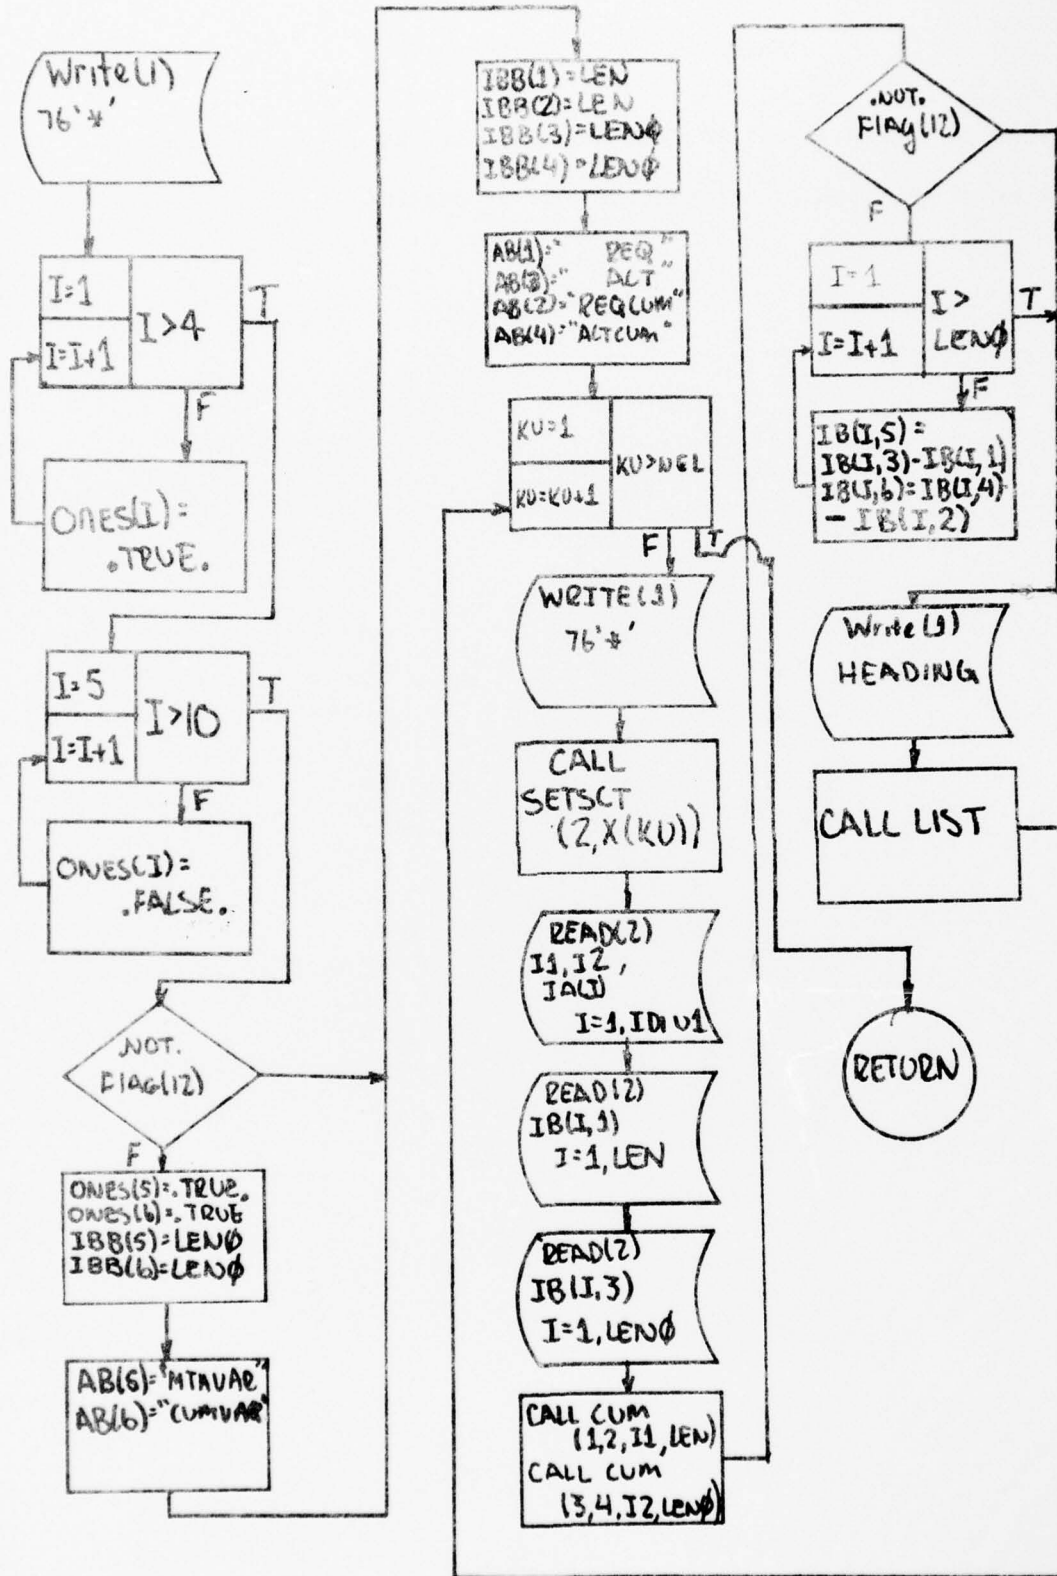 Write(1)
76'*'
I=1
I>4
T
I=I+1
F
ONES(I)=
.TRUE.
I=5
I>10
T
I=I+1
F
ONES(I)=
.FALSE.
.NOT.
FlAG(12)
F
ONES(5)=.TRUE.
ONES(6)=.TRUE
IBB(5)=LENØ
IBB(6)=LENØ
AB(5)="MTHVAR"
AB(6)="CUMVAR"
IBB(1)=LEN
IBB(2)=LEN
IBB(3)=LENØ
IBB(4)=LENØ
AB(1)=" REQ"
AB(3)=" ALT"
AB(2)="REQCUM"
AB(4)="ALTCUM"
KU=1
KU>NEL
KU=KU+1
F
T
WRITE(1)
76'*'
CALL
SETSCT
(2,X(KU))
READ(2)
I1,I2,
IA(I)
I=1,IDIV1
READ(2)
IB(I,1)
I=1,LEN
READ(2)
IB(I,3)
I=1,LENØ
CALL CUM
(1,2,I1,LEN)
CALL CUM
(3,4,I2,LENØ)
.NOT.
FlAg(12)
F
I=1
I>
LENØ
T
I=I+1
F
IB(I,5)=
IB(I,3)-IB(I,1)
IB(I,6)=IB(I,4)
-IB(I,2)
Write(1)
HEADING
CALL LIST
RETURN